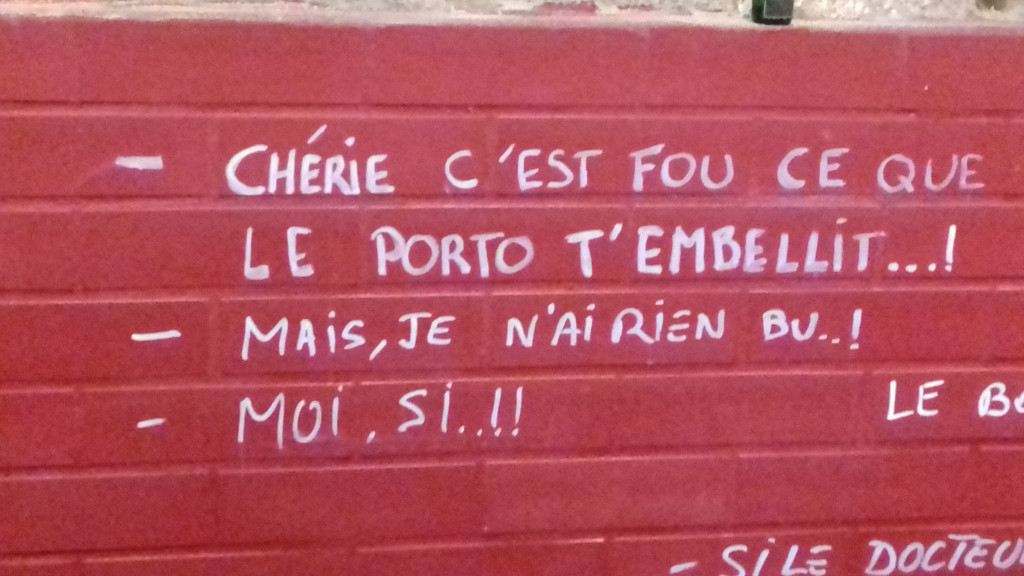 - CHÉRIE C'EST FOU CE QUE
LE PORTO T'EMBELLIT...!
- MAIS, JE N'AI RIEN BU..!
- MOI, SI..!!
LE
- SI LE